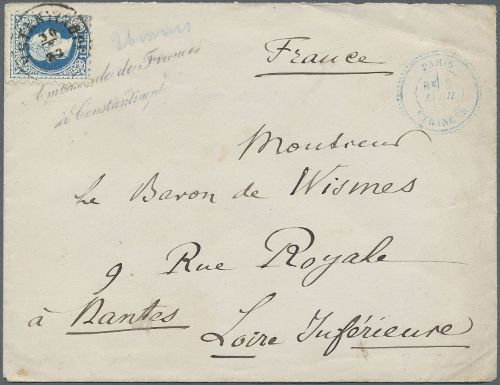 France
Ambassade de France
à Constantinople
PARIS
ETRANGER
Monsieur
Le Baron de Wismes
9 Rue Royale
à Nantes
Loire Inférieure